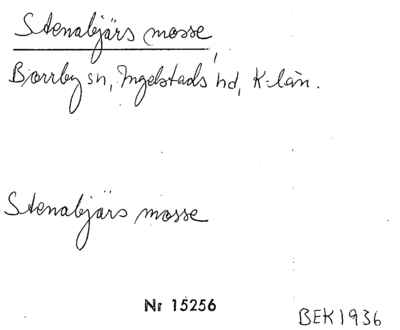 Stenabjärs mosse,
Borrby sn, Ingelstads hd, K-län.
Stenabjärs mosse
Nr 15256
BEK1936